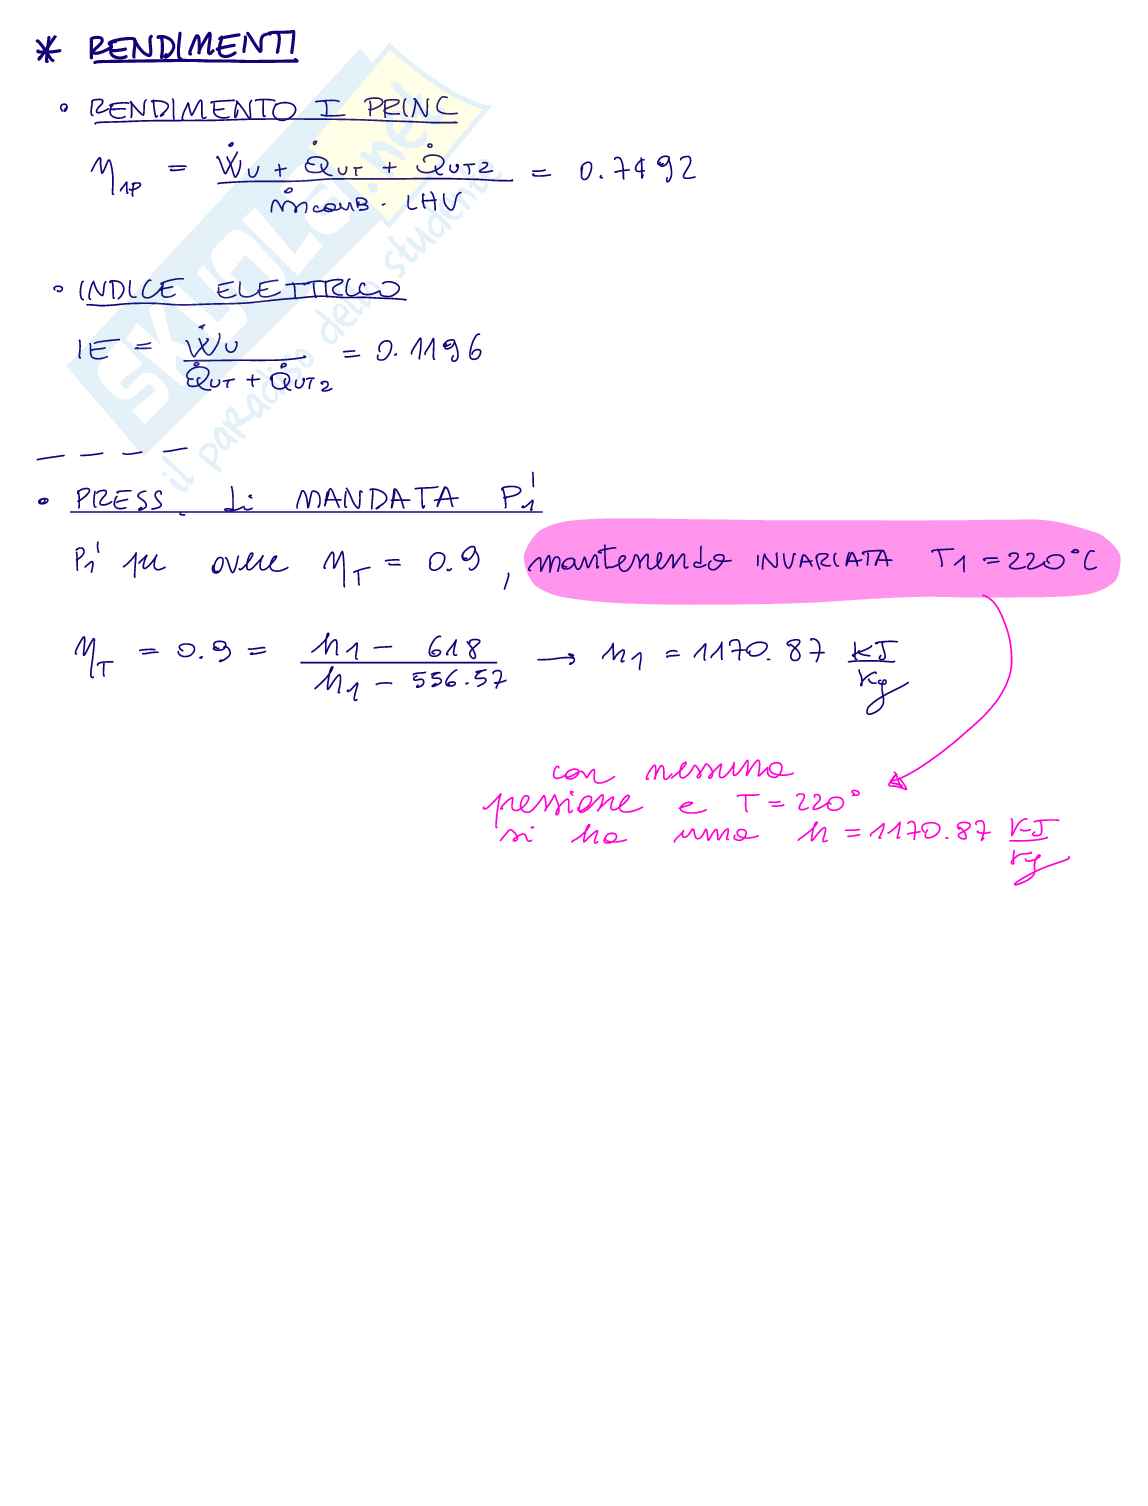 * RENDIMENTI
• RENDIMENTO I PRINC
η1P = (ẆU + Q̇UT + Q̇UT2) / (ṁcomb · LHV) = 0.7492
• INDICE ELETTRICO
IE = ẆU / (Q̇UT + Q̇UT2) = 0.1196
– – – –
• PRESS. di MANDATA P1'
P1' per avere ηT = 0.9, mantenendo INVARIATA T1 = 220°C
ηT = 0.9 = (h1 – 618) / (h1 – 556.57) → h1 = 1170.87 kJ/kg
con nessuna
pressione e T = 220°
si ha una h = 1170.87 kJ/kg
SKUOLA.net
il paradiso dello studente